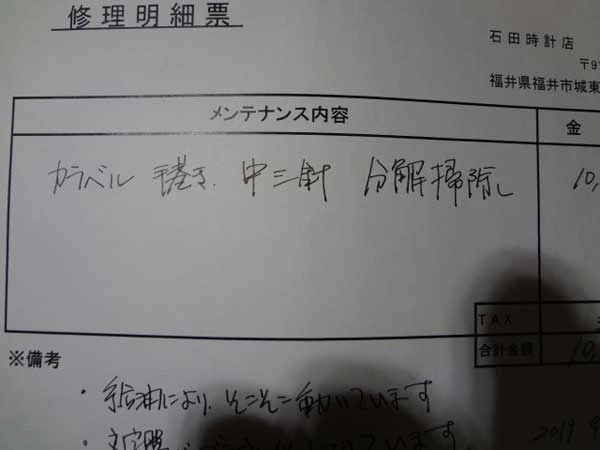 修理明細票
石田時計店
〒91
福井県福井市城東
メンテナンス内容
金
カラベル 手巻き. 中三針 分解掃除し
10,
TAX
合計金額
10,
※備考
・給油により、そこそこ動いています
・文字盤
ています。
2019 9